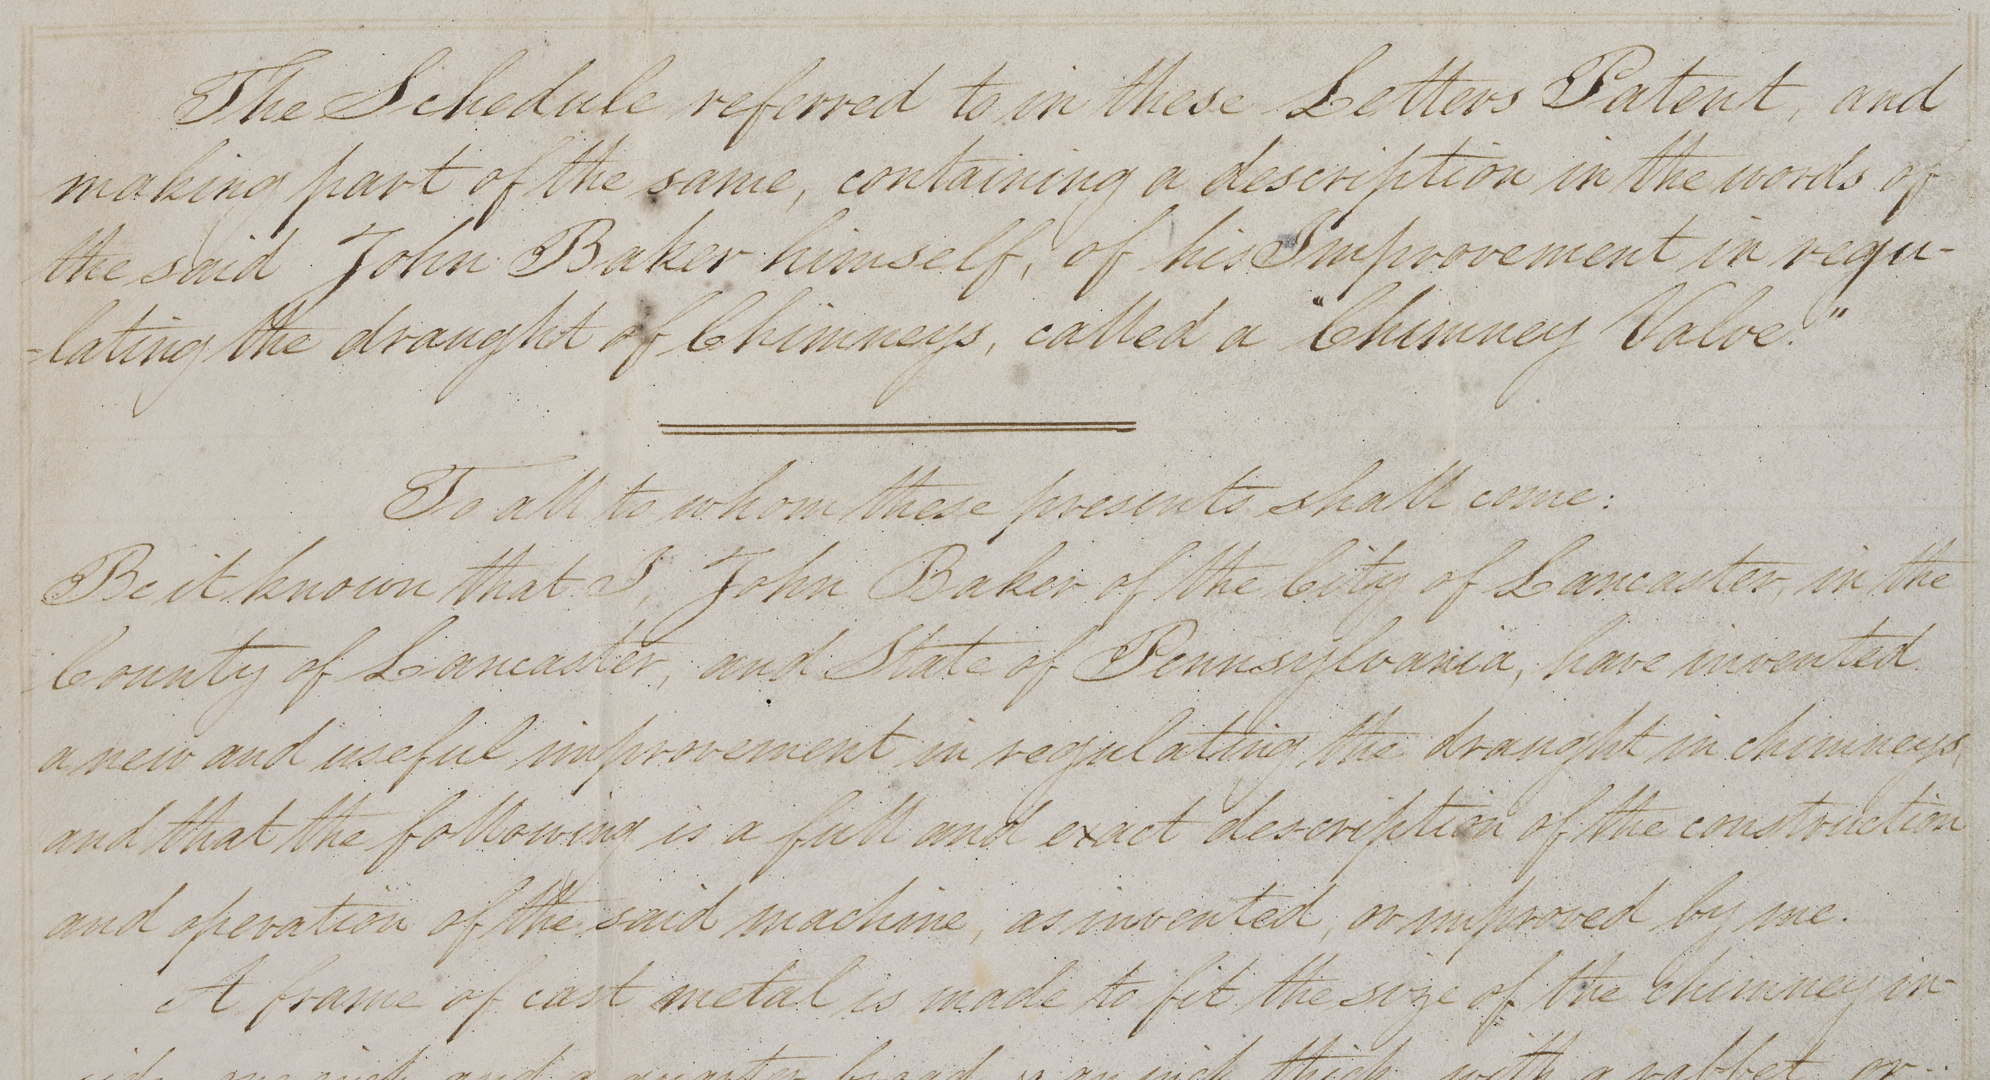 The Schedule referred to in these Letters Patent, and
making part of the same, containing a description in the words of
the said John Baker himself, of his Improvement in regu-
-lating the draught of Chimneys, called a "Chimney Valve."
To all to whom these presents shall come:
Be it known that I, John Baker of the City of Lancaster, in the
County of Lancaster, and State of Pennsylvania, have invented
a new and useful improvement in regulating the draught in chimneys,
and that the following is a full and exact description of the construction
and operation of the said machine, as invented, or improved by me.
A frame of cast metal is made to fit the size of the chimney in-
side, one inch and a quarter broad, an inch thick, with a rabbet, or